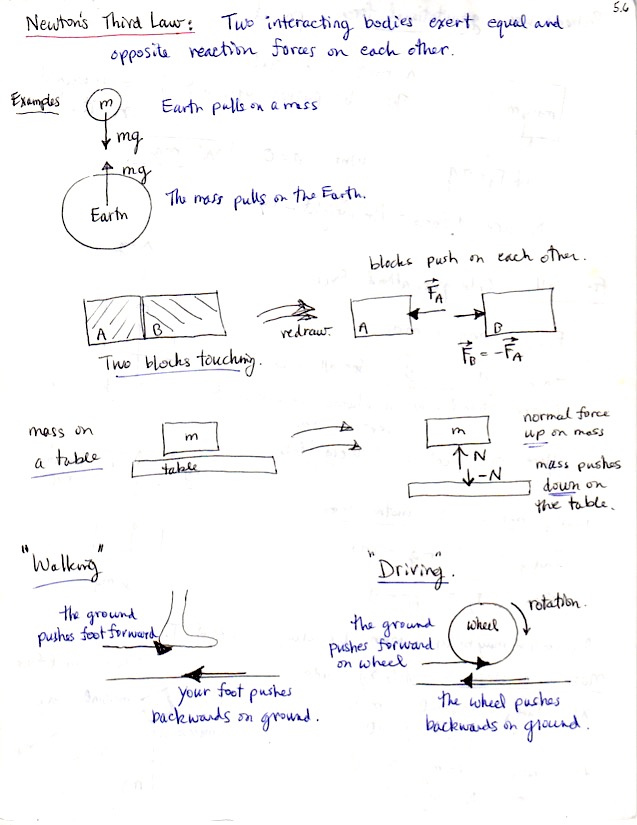 5.6
Newton's Third Law: Two interacting bodies exert equal and
opposite reaction forces on each other.
Examples
m
Earth pulls on a mass
mg
mg
Earth
The mass pulls on the Earth.
blocks push on each other.
A
B
redraw.
A
F⃗A
B
F⃗B = -F⃗A
Two blocks touching.
mass on
a table
m
table
m
N
-N
normal force
up on mass
mass pushes
down on
the table.
"Walking"
the ground
pushes foot forward
your foot pushes
backwards on ground.
"Driving".
the ground
pushes forward
on wheel
wheel
rotation.
the wheel pushes
backwards on ground.